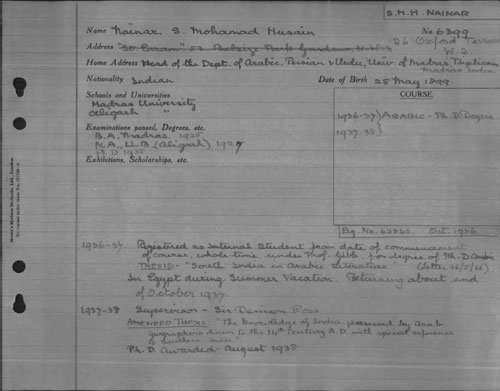 S.M.H. NAINAR
Name Nainar, S. Mohamad Husain No. 6399
Address "So Enram" 53 Belsize Park Gardens, N.W.3 26 Oxford Terrace W.2.
Home Address Head of the Dept. of Arabic, Persian & Urdu, Univ. of Madras, Triplicane Madras India
Nationality Indian Date of Birth 25 May 1899.
Schools and Universities
Madras University
Aligarh "
COURSE
1936-37) ARABIC - Ph.D. Degree
1937-38)
Examinations passed, Degrees, etc.
B.A. Madras, 1925
M.A., LL.B (Aligarh) 1927
Ph.D. 1938
Exhibitions, Scholarships, etc.
Reg No. 42840. Oct. 1936
1936-37 Registered as Internal Student from date of commencement
of course, whole-time, under Prof. Gibb for degree of Ph.D. Arabic
THESIS:- "South India in Arabic Literature (Letter 26/5/36)
In Egypt during Summer Vacation. Returning about end
of October 1937.
1937-38 Supervisor - Sir Denison Ross.
AMENDED THESIS: "The knowledge of India possessed by Arab
geographers down to the 14th century A.D. with special reference
to Southern India"
Ph.D. Awarded - August 1938